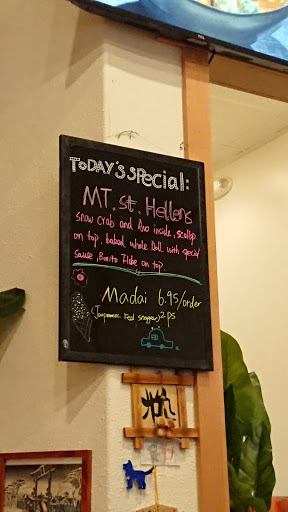 TODAY'S SPECIAL:
MT. St. Hellens
snow crab and Avo inside, scallop
on top, baked whole Roll with special
sause, Bonito Flake on top
Madai 6.95/order
(Japanese Red snapper) 2ps